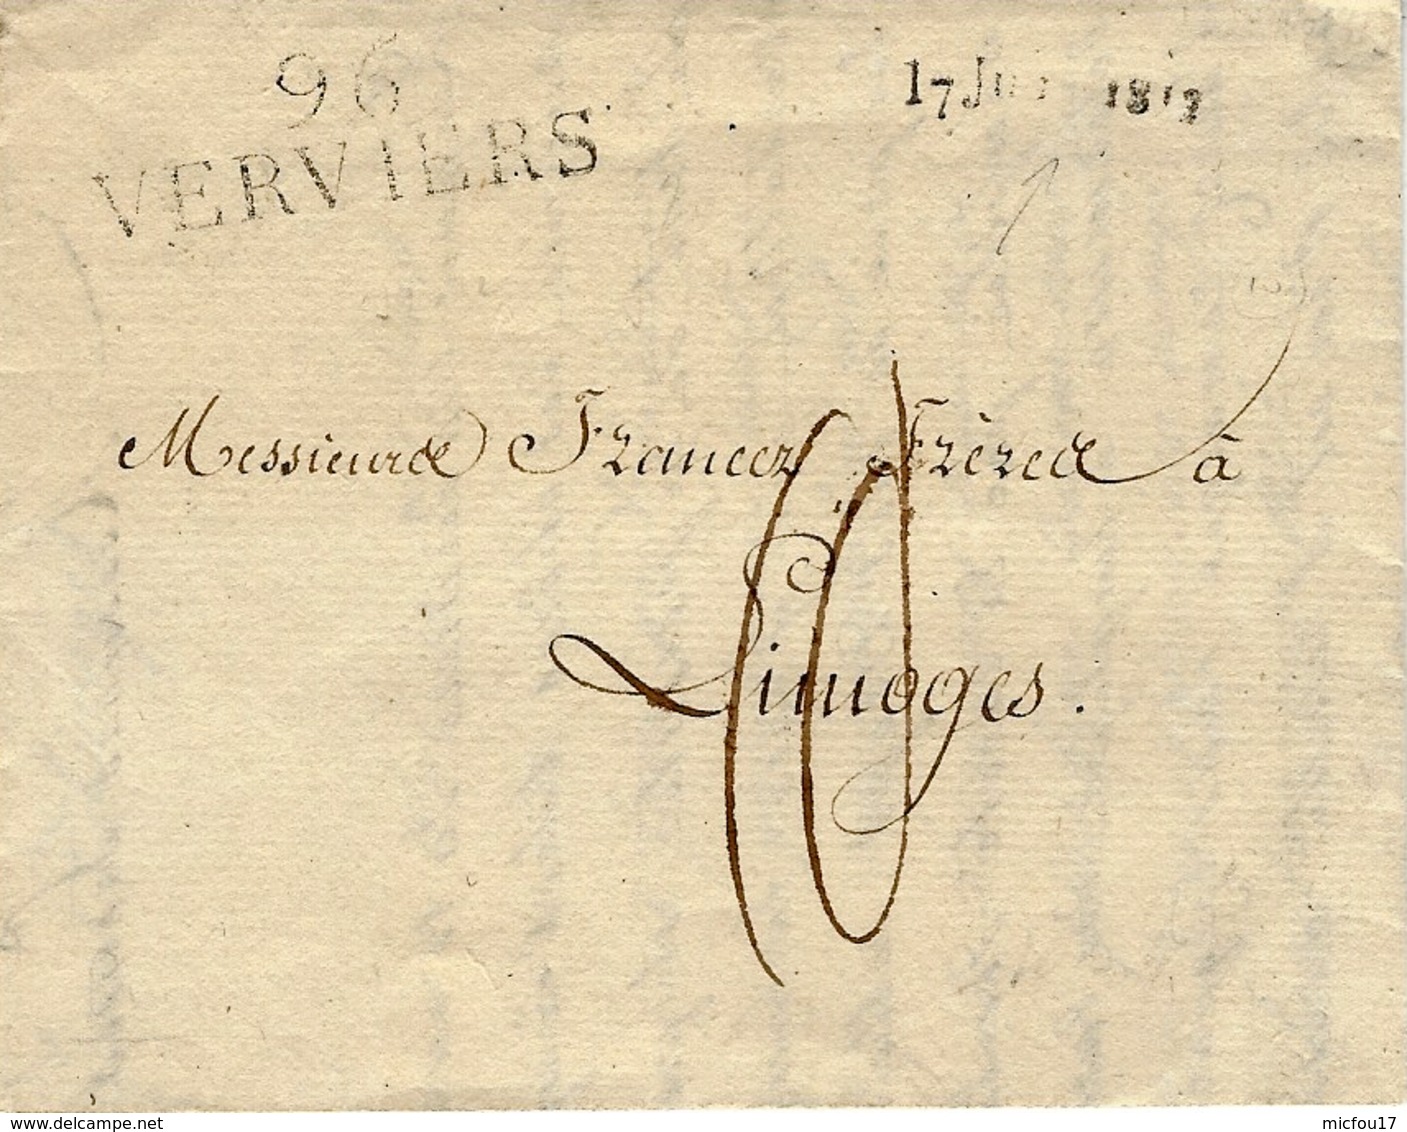 96
VERVIERS
17 1812
Messieurs Francez Frères à
Limoges.
10
www.delcampe.net
micfou17